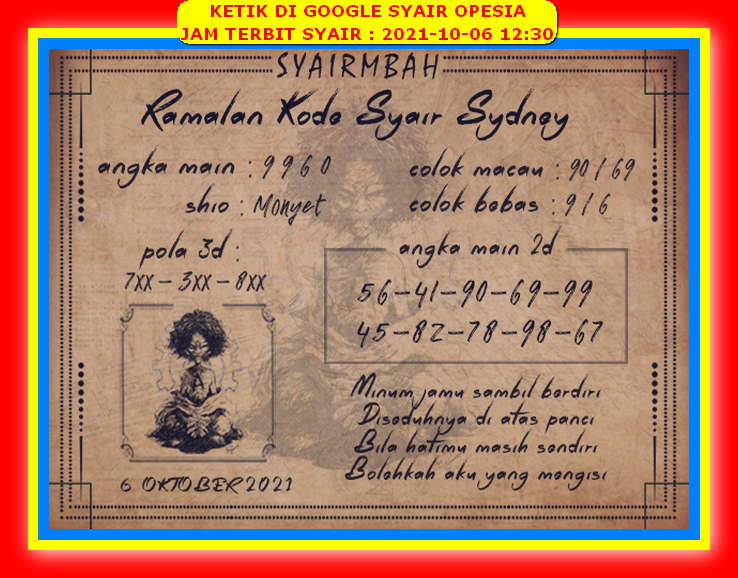 KETIK DI GOOGLE SYAIR OPESIA
JAM TERBIT SYAIR : 2021-10-06 12:30
SYAIRMBAH
Ramalan Kode Syair Sydney
angka main : 9 9 6 0
colok macau : 90 / 69
shio : Monyet
colok bebas : 9 / 6
pola 3d :
7xx - 3xx - 8xx
angka main 2d
56-41-90-69-99
45-82-78-98-67
Minum jamu sambil berdiri
Diseduhnya di atas panci
Bila hatimu masih sendiri
Bolehkah aku yang mengisi
6 OKTOBER 2021